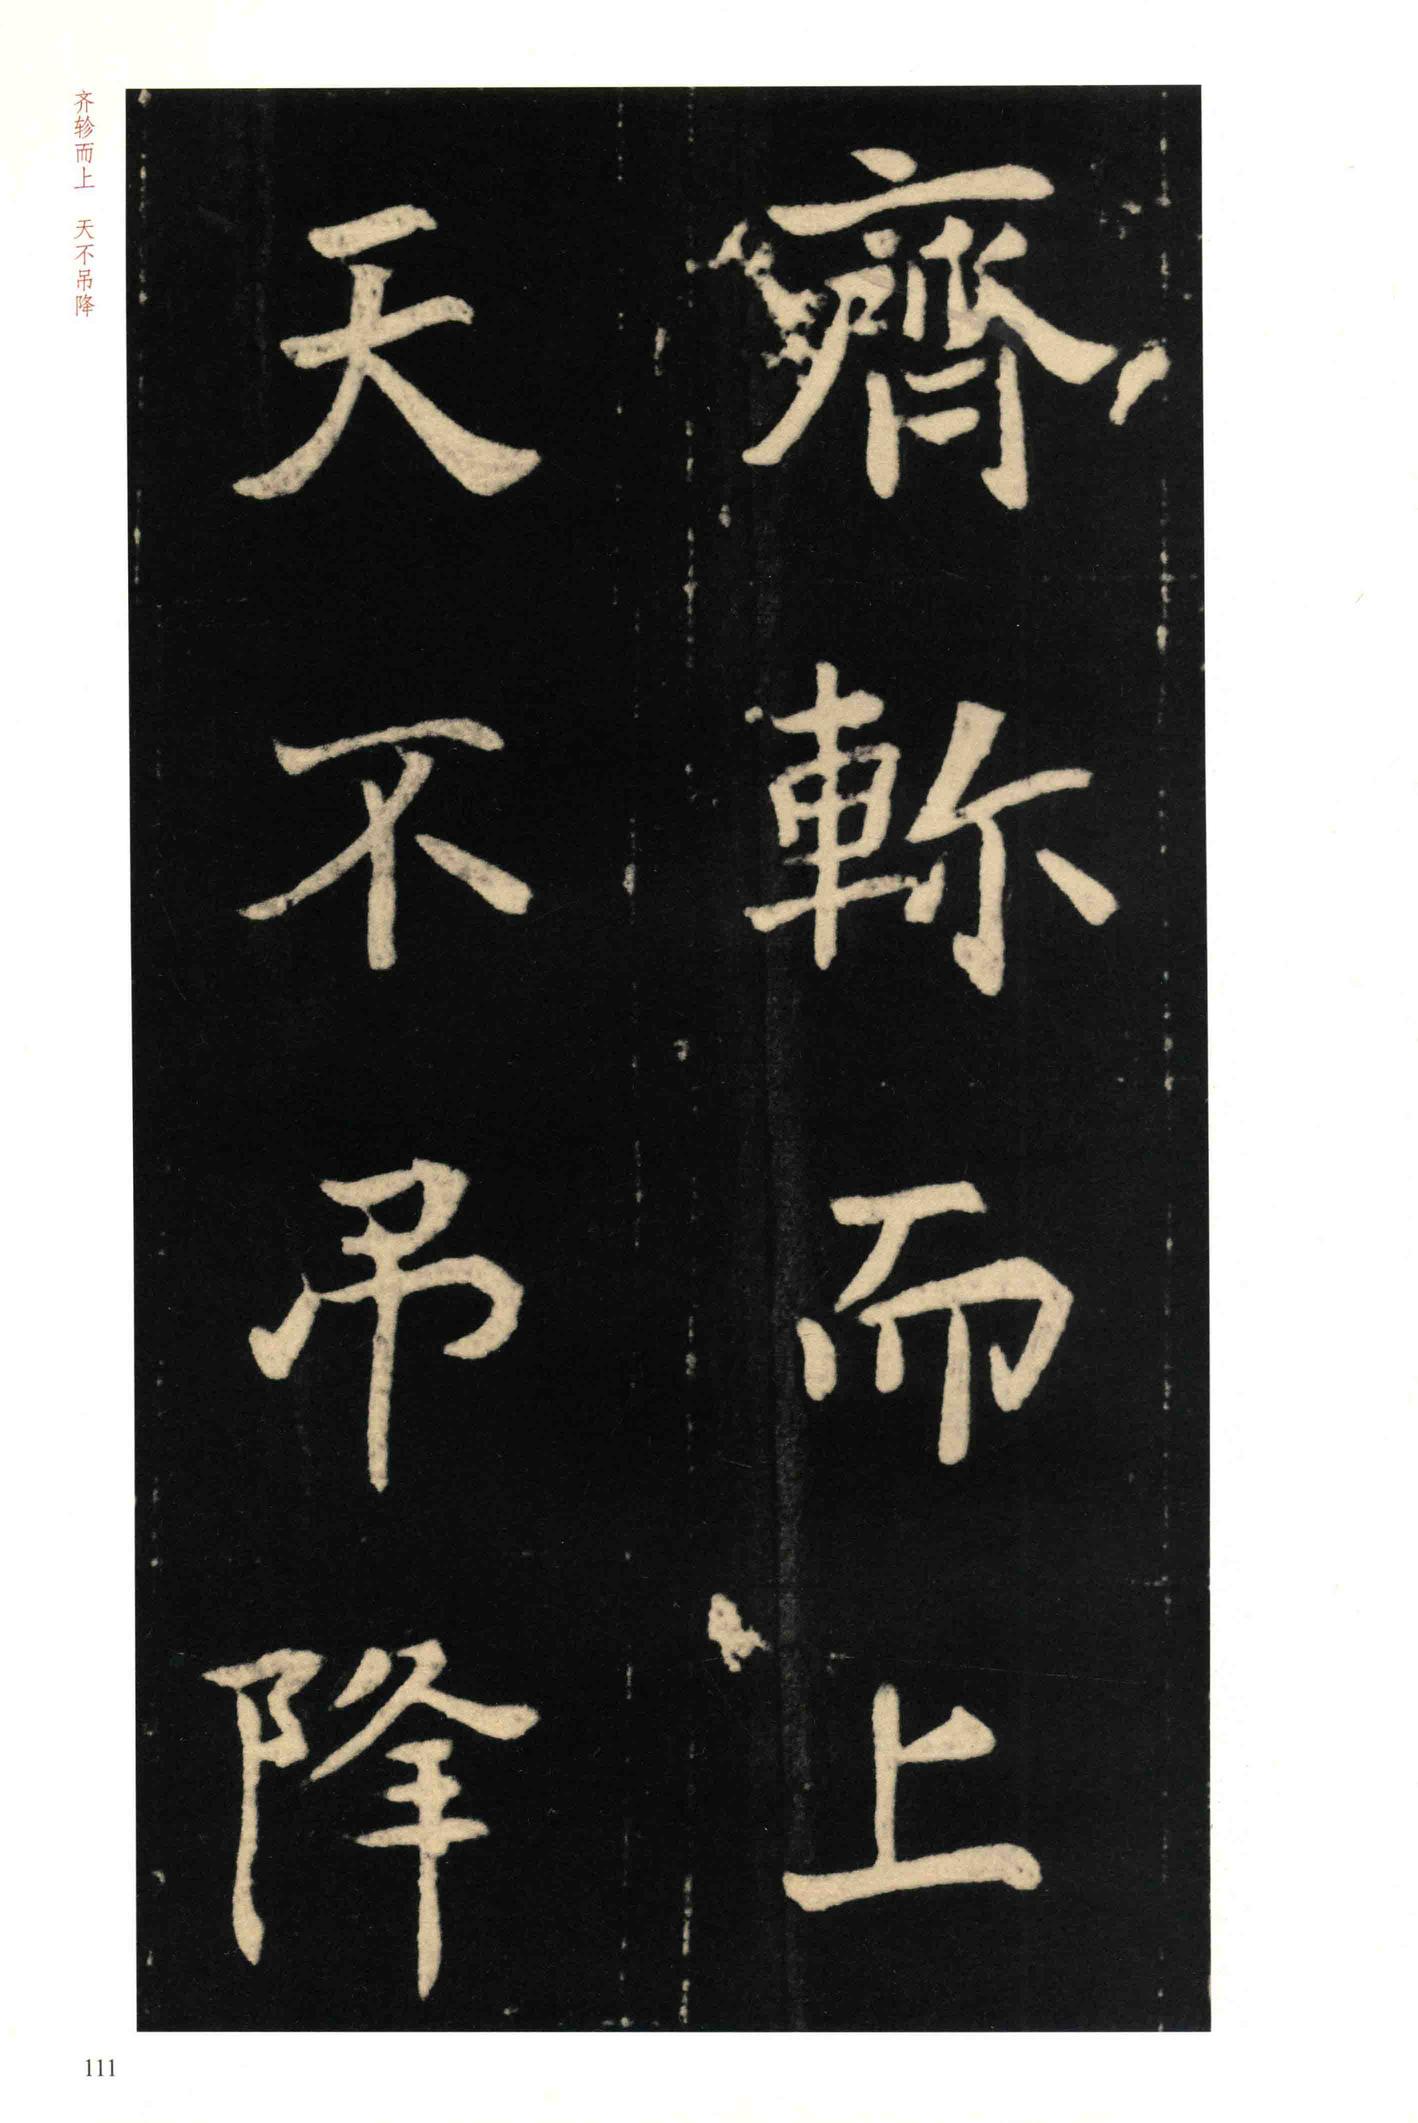 齊軫而上
天不吊降
齐轸而上 天不吊降
111